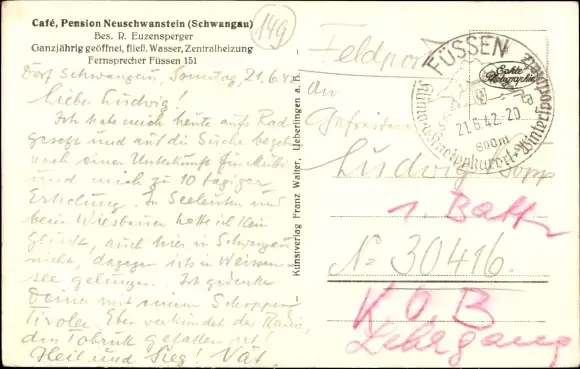 Café, Pension Neuschwanstein (Schwangau)
Bes. R. Euzensperger
Ganzjährig geöffnet, fließ. Wasser, Zentralheizung
Fernsprecher Füssen 151
149
Dorf Schwangau, Sonntag 21.6.42
Lieber Ludwig!
Ich habe mich heute aufs Rad
gesetzt und auf die Suche begeben
nach einer Unterkunft für
und mich zu 10 tägiger
Erholung. In Seeleuten und
beim Wiesbauer hatte ich kein
Glück, auch hier in Schwangau
nicht, dagegen ists in Weissen-
see gelungen. Ich gedenke
Deiner mit einem Schoppen
Tiroler. Eben verkündet das Radio,
daß Tobruk gefallen ist!
Heil und Sieg! Vat.
Kunstverlag Franz Walter, Ueberlingen a. B.
Feldpost
An
Gefreiten
Ludwig
1. Batt
No 30416
K.O.B
Lehrgang
FÜSSEN
21.6.42.-20
800m
Kneippkurort Wintersportplatz
Echte Photographie